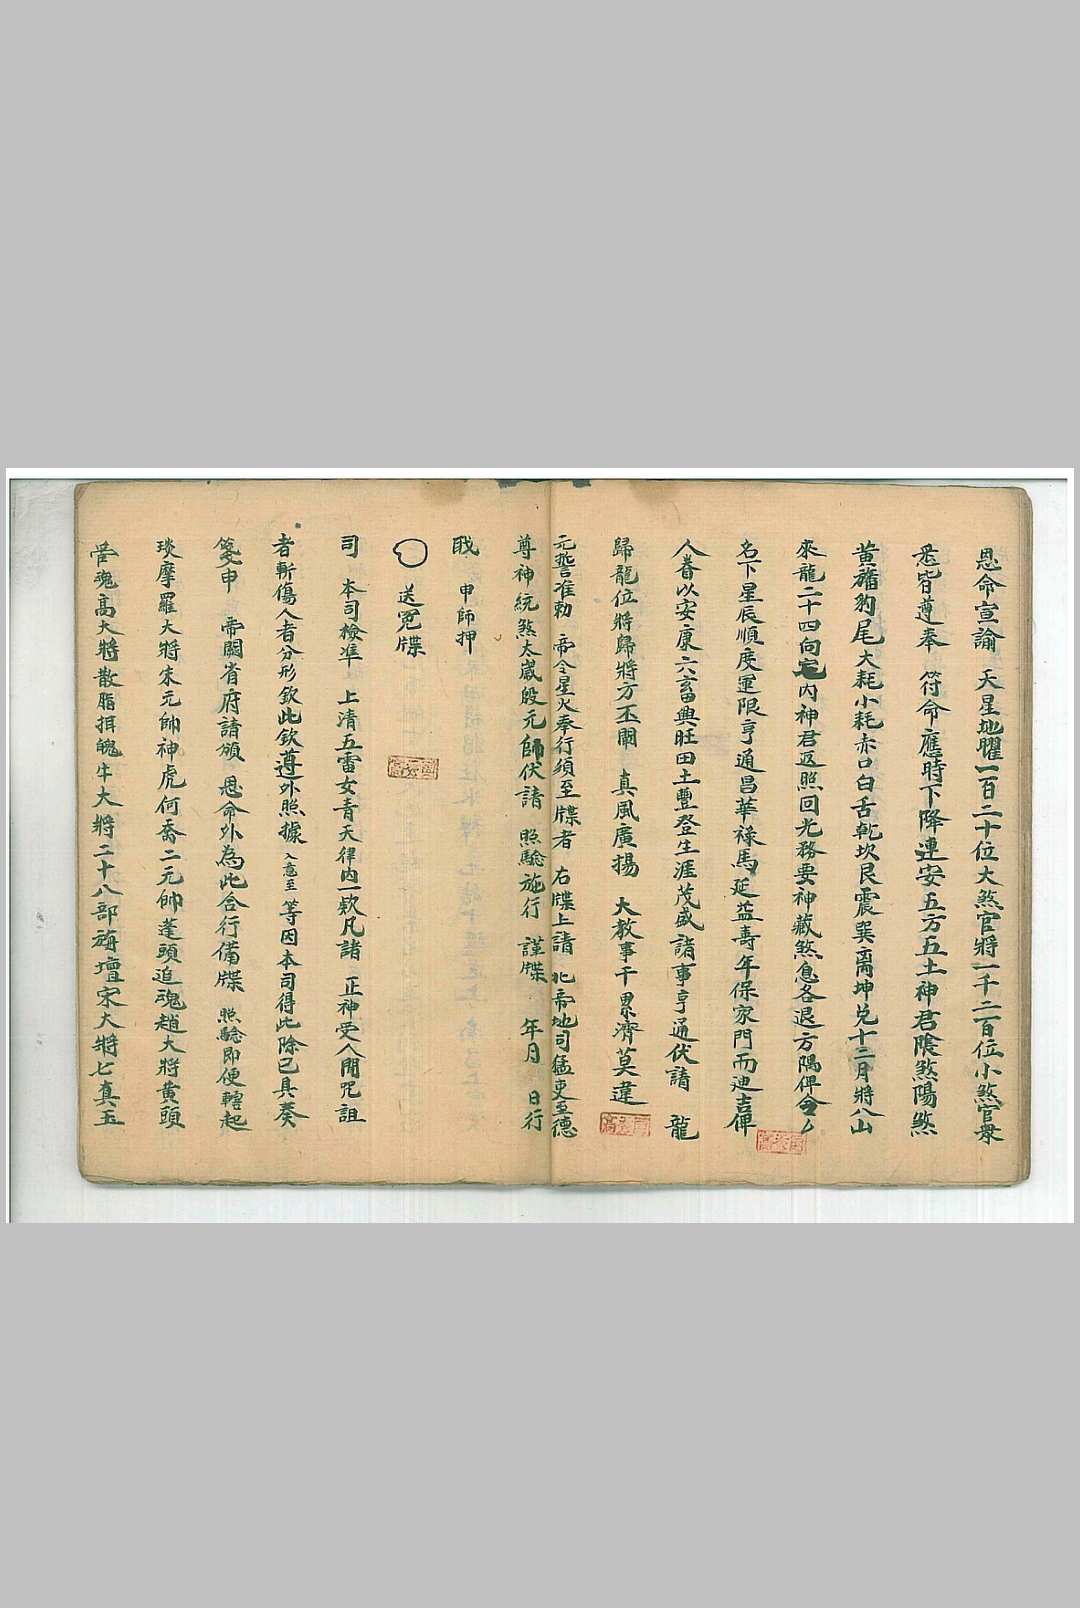 恩命宣諭 天星地曜一百二十位大煞官將一千二百位小煞官眾
悉皆遵奉 符命應時下降連安五方五土神君陰煞陽煞
黃旛豹尾大耗小耗赤口白舌乾坎艮震巽离坤兌十二月將八山
來龍二十四向宅內神君返照回光務要神藏煞息各退方隅俾令
名下星辰順度運限亨通昌華祿馬延益壽年保家門而迪吉俾
人眷以安康六畜興旺田土豐登生涯茂盛諸事亨通伏請 龍
歸龍位將歸將方丕闡 真風廣揚 大教事干累濟莫違
元誓准勅 帝令星火奉行須至牒者 右牒上請 北帝地司猛吏至德
尊神統煞太歲殷元帥伏請 照驗施行 謹牒 年月 日行
戝 申師押
〇 送冤牒
司 本司檢準 上清五雷女青天律內一款凡諸 正神受人開咒詛
者斬傷人者分形欽此欽遵外照據 入意至 等因本司得此除已具奏
箋申 帝闕省府請頒 恩命外為此合行備牒 照驗即便轉起
琰摩羅大將朱元帥神虎何喬二元帥蓬頭追魂趙大將黃頭
管魂高大將散脂揖魄牛大將二十八部旃壇宋大將七真五